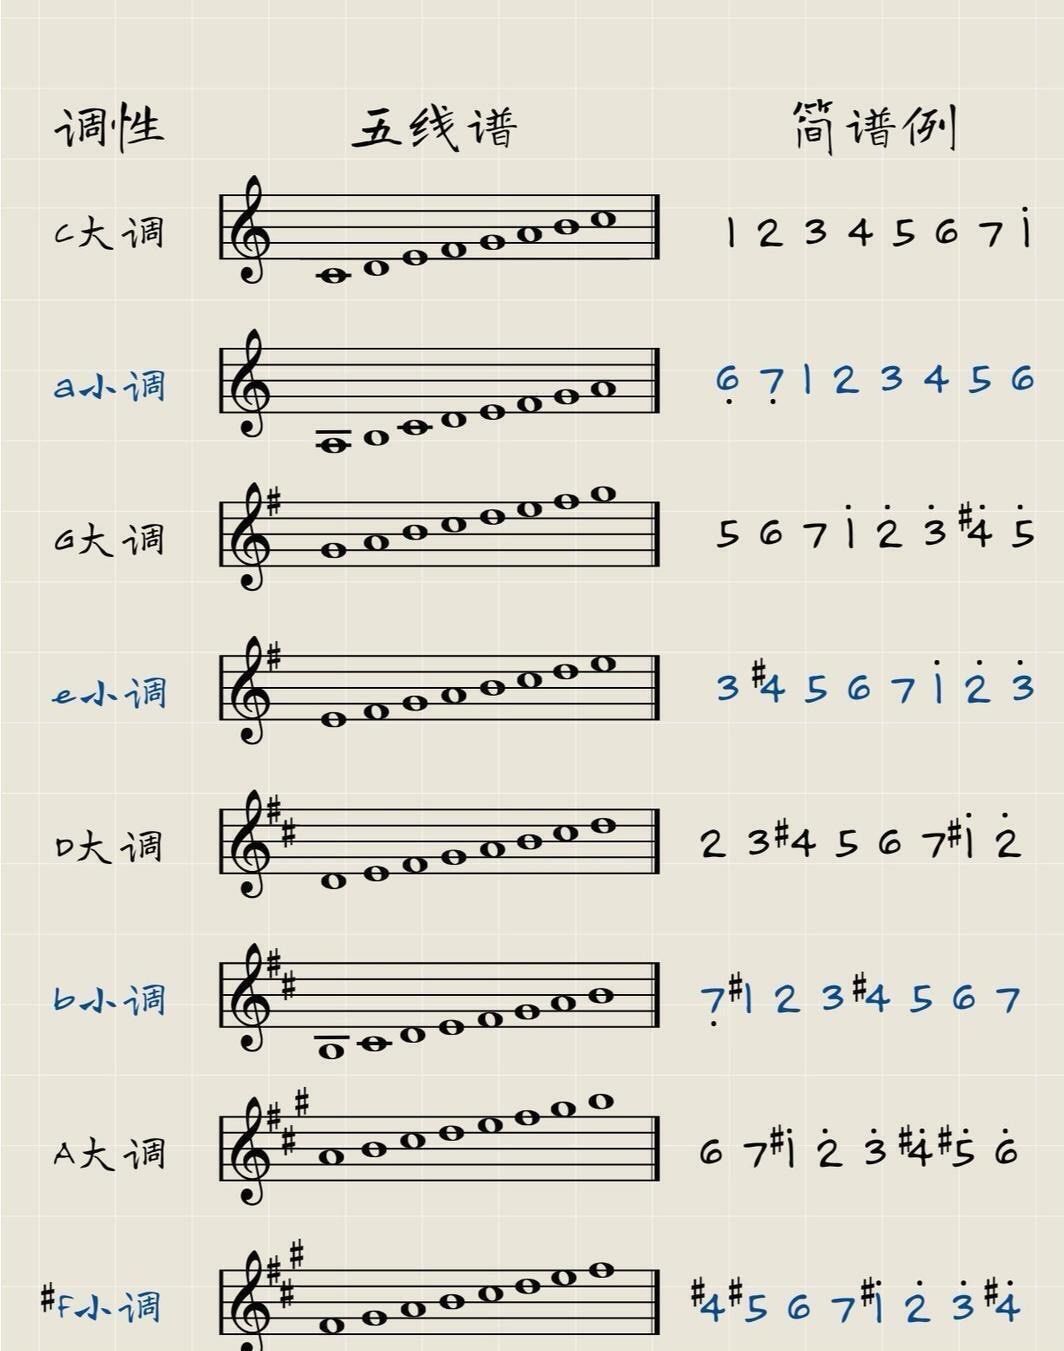 调性 五线谱 简谱例
C大调 1 2 3 4 5 6 7 i̇
a小调 6̣ 7̣ 1 2 3 4 5 6
G大调 5 6 7 1̇ 2̇ 3̇ #4̇ 5̇
e小调 3 #4 5 6 7 1̇ 2̇ 3̇
D大调 2 3 #4 5 6 7 #1̇ 2̇
b小调 7̣ #1 2 3 #4 5 6 7
A大调 6 7 #1̇ 2̇ 3̇ #4̇ #5̇ 6̇
#F小调 #4 #5 6 7 #1̇ 2̇ 3̇ #4̇